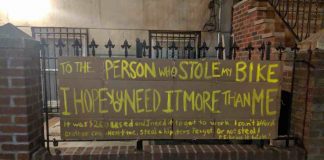 TO THE PERSON WHO STOLE MY BIKE
I HOPE YOU NEED IT MORE THAN ME
IT WAS $200 USED AND I NEED IT TO GET TO WORK I CAN'T AFFORD
ANOTHER ONE NEXT TIME, STEAL A HIPSTERS